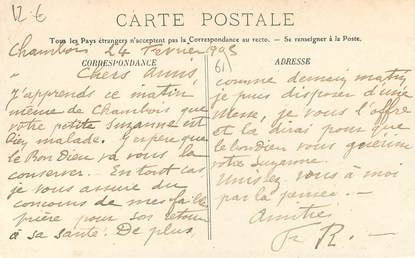 12.6
CARTE POSTALE
Tous les Pays étrangers n'acceptent pas la Correspondance au recto. — Se renseigner à la Poste.
Chambois 24 Février 1908
CORRESPONDANCE
" Chers Amis,
J'apprends ce matin
même de Chambois que
votre petite Suzanne est
bien malade. J'espère que
le Bon Dieu va vous la
conserver. En tout cas,
je vous assure du
concours de mes faibles
prière pour son retour
à sa santé. De plus,
ADRESSE
61)
comme demain matin
je puis disposer d'une
Messe, je vous l'offre
et la dirai pour que
le bon dieu vous guérisse
votre Suzanne.
Unissez-vous à moi
par la pensée. —
Amitiés
R. —